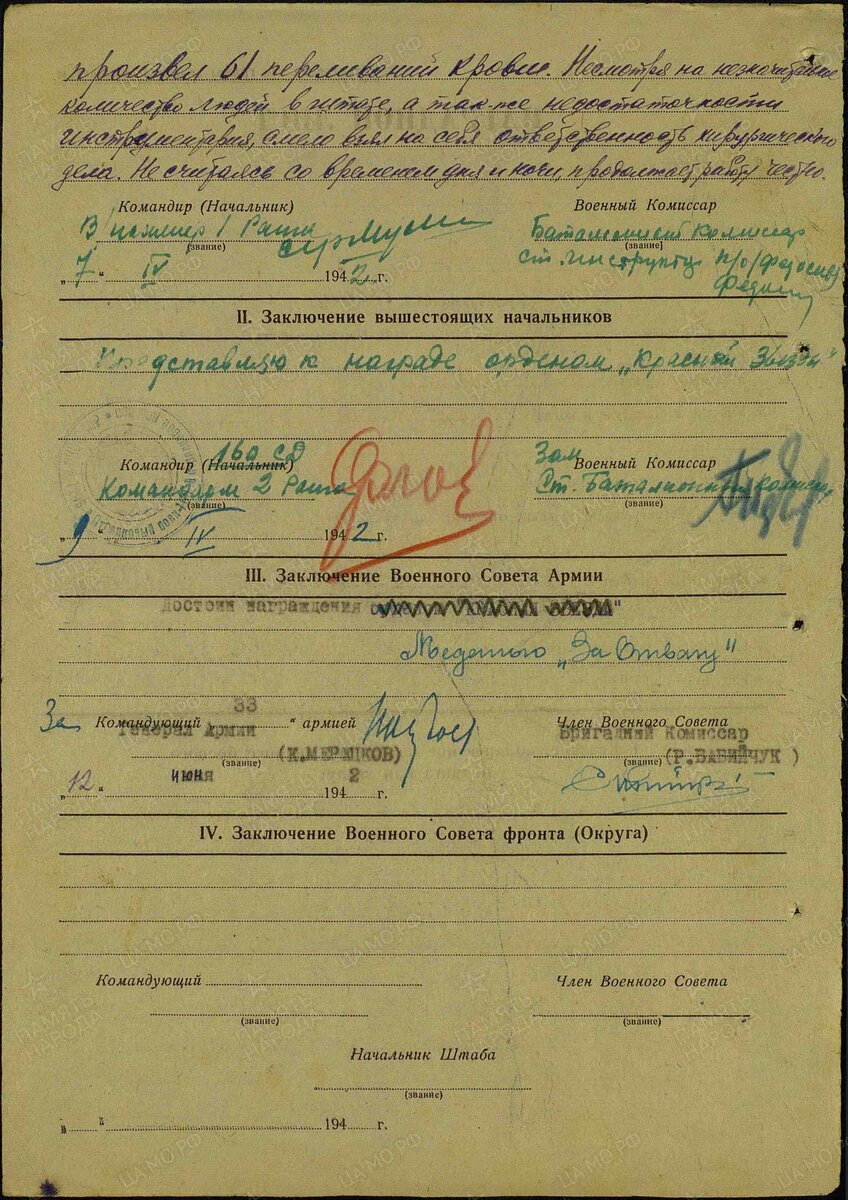 произвел 61 переливаний крови. Несмотря на незначительное
количество людей в штате, а так-же недостаточности
инструментария, смело взял на себя ответственность хирургического
дела. Не считаясь со временем дня и ночи, продолжает работу честно.
Командир (Начальник)
Военный Комиссар
(звание)
Ст. инструктор
„7“ IV 1942 г.
II. Заключение вышестоящих начальников
Представляю к награде орденом „Красной Звезды"
160 сд
Командир (Начальник)
Зам Военный Комиссар
Ст. Батальонный
(звание)
(звание)
„9“ IV 1942 г.
III. Заключение Военного Совета Армии
Достоин награждения
Медалью „За Отвагу"
За Командующий „33“ армией
Член Военного Совета
Генерал Армии
Бригадный Комиссар
(звание) (К.МЕРЕЦКОВ)
(звание) (Р.БАБИЙЧУК)
„12“ июня 1942 г.
IV. Заключение Военного Совета фронта (Округа)
Командующий
Член Военного Совета
(звание)
(звание)
Начальник Штаба
(звание)
„ “ 194 г.
ЦАМО РФ
ПАМЯТЬ НАРОДА